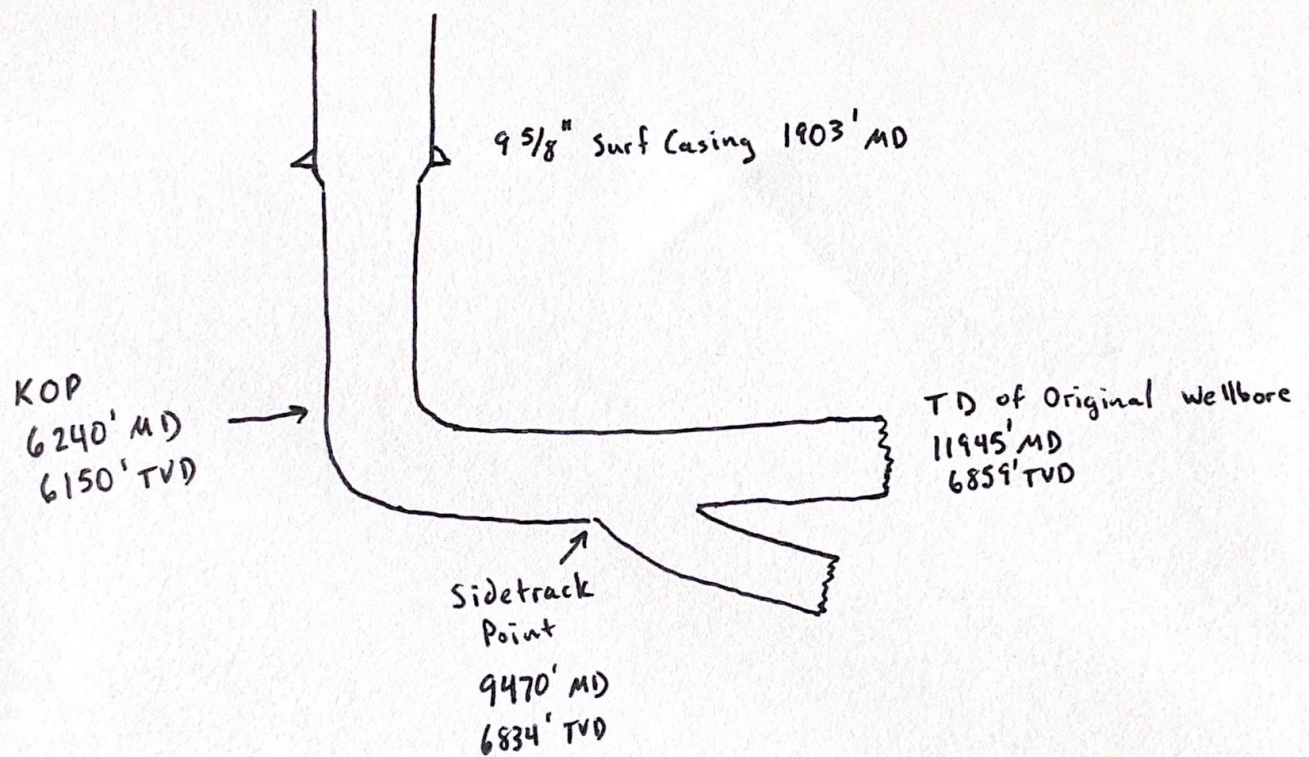 9 5/8" Surf Casing 1903' MD
KOP
6240' MD
6150' TVD
TD of Original Wellbore
11945' MD
6859' TVD
Sidetrack
Point
9470' MD
6834' TVD